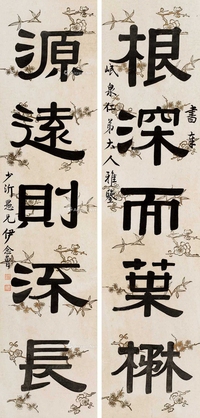 書奉
根深而葉楙
岷泉仁弟大人雅鑒
源遠則流長
少沂愚兄伊念曾